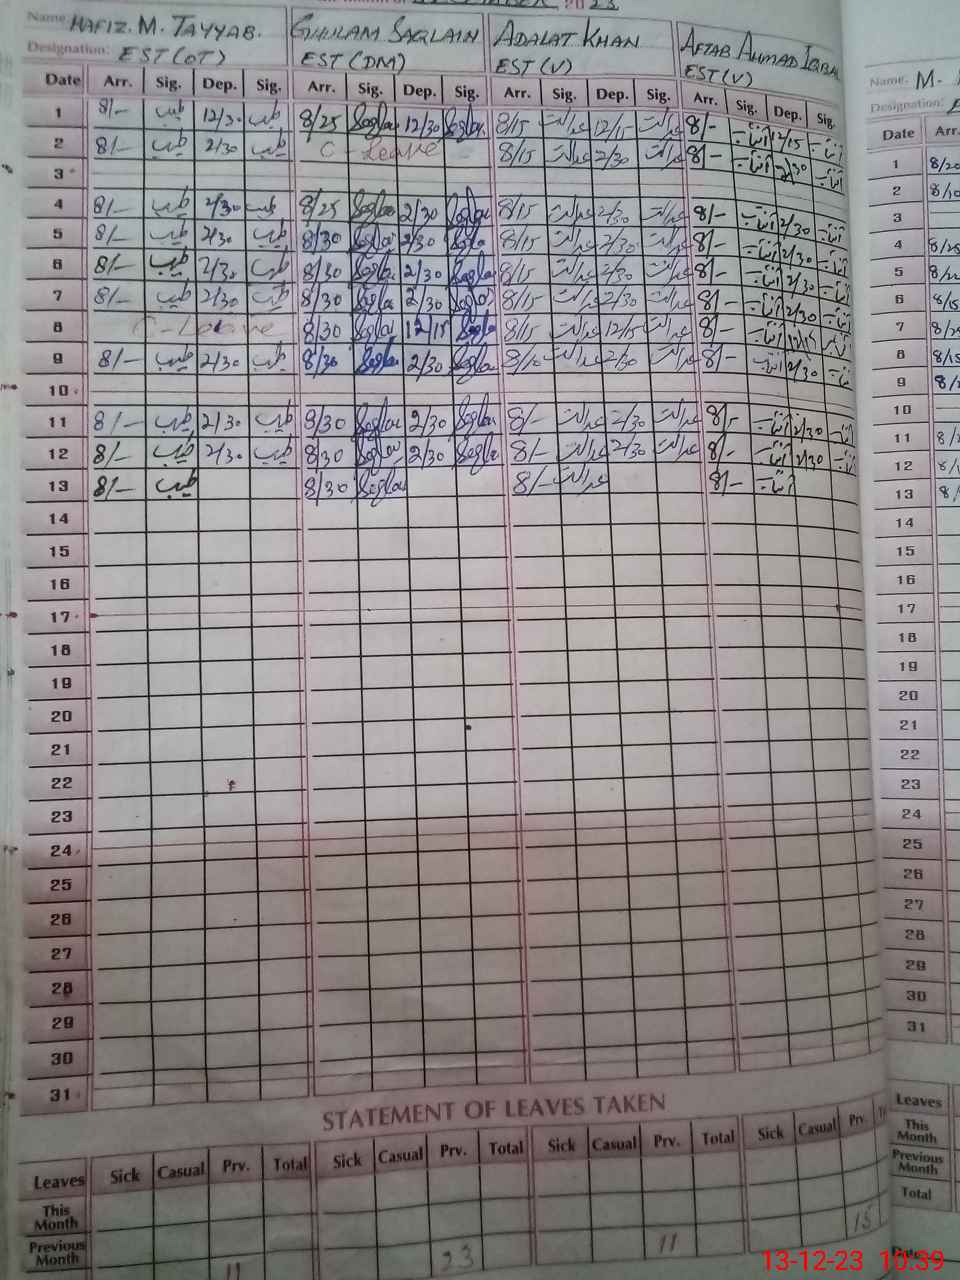 DECEMBER 2023
Name HAFIZ. M. TAYYAB. GHULAM SAQLAIN ADALAT KHAN AFTAB AHMAD IQBAL Name. M.
Designation: EST (OT) EST (DM) EST (V) EST (V) Designation:
Date Arr. Sig. Dep. Sig. Arr. Sig. Dep. Sig. Arr. Sig. Dep. Sig. Arr. Sig. Dep. Sig. Date Arr.
1 8/- طیب 12/30 طیب 8/25 Saqlain 12/30 Saqlain 8/15 عدالت 12/15 عدالت 8/- 12/15 1 8/20
2 8/- طیب 2/30 طیب C-Leave 8/15 عدالت 2/30 عدالت 8/- 2/30 2 8/10
3 3
4 8/- طیب 2/30 طیب 8/25 Saqlain 2/30 Saqlain 8/15 عدالت 2/30 عدالت 8/- 2/30 4
5 8/- طیب 2/30 طیب 8/30 Saqlain 2/30 Saqlain 8/15 عدالت 2/30 عدالت 8/- 2/30 5
6 8/- طیب 2/30 طیب 8/30 Saqlain 2/30 Saqlain 8/15 عدالت 2/30 عدالت 8/- 2/30 6 8/15
7 8/- طیب 2/30 طیب 8/30 Saqlain 2/30 Saqlain 8/15 عدالت 2/30 عدالت 8/- 2/30 7
8 C-Leave 8/30 Saqlain 12/15 Saqlain 8/15 عدالت 12/15 عدالت 8/- 12/15 8 8/15
9 8/- طیب 2/30 طیب 8/30 Saqlain 2/30 Saqlain 8/10 عدالت 2/30 عدالت 8/- 2/30 9
10 10
11 8/- طیب 2/30 طیب 8/30 Saqlain 2/30 Saqlain 8/- عدالت 2/30 عدالت 8/- 2/30 11
12 8/- طیب 2/30 طیب 8/30 Saqlain 2/30 Saqlain 8/- عدالت 2/30 عدالت 8/- 2/30 12
13 8/- طیب 8/30 Saqlain 8/- عدالت 8/- 13
14 14
15 15
16 16
17 17
18 18
19 19
20 20
21 21
22 22
23 23
24 24
25 25
26 26
27 27
28 28
29 29
30 30
31 31
STATEMENT OF LEAVES TAKEN
Leaves Sick Casual Prv. Total Sick Casual Prv. Total Sick Casual Prv. Total Sick Casual Prv. Leaves
This Month This Month
Previous Month 11 23 11 15 Previous Month
Total
Date
13-12-23 10:39